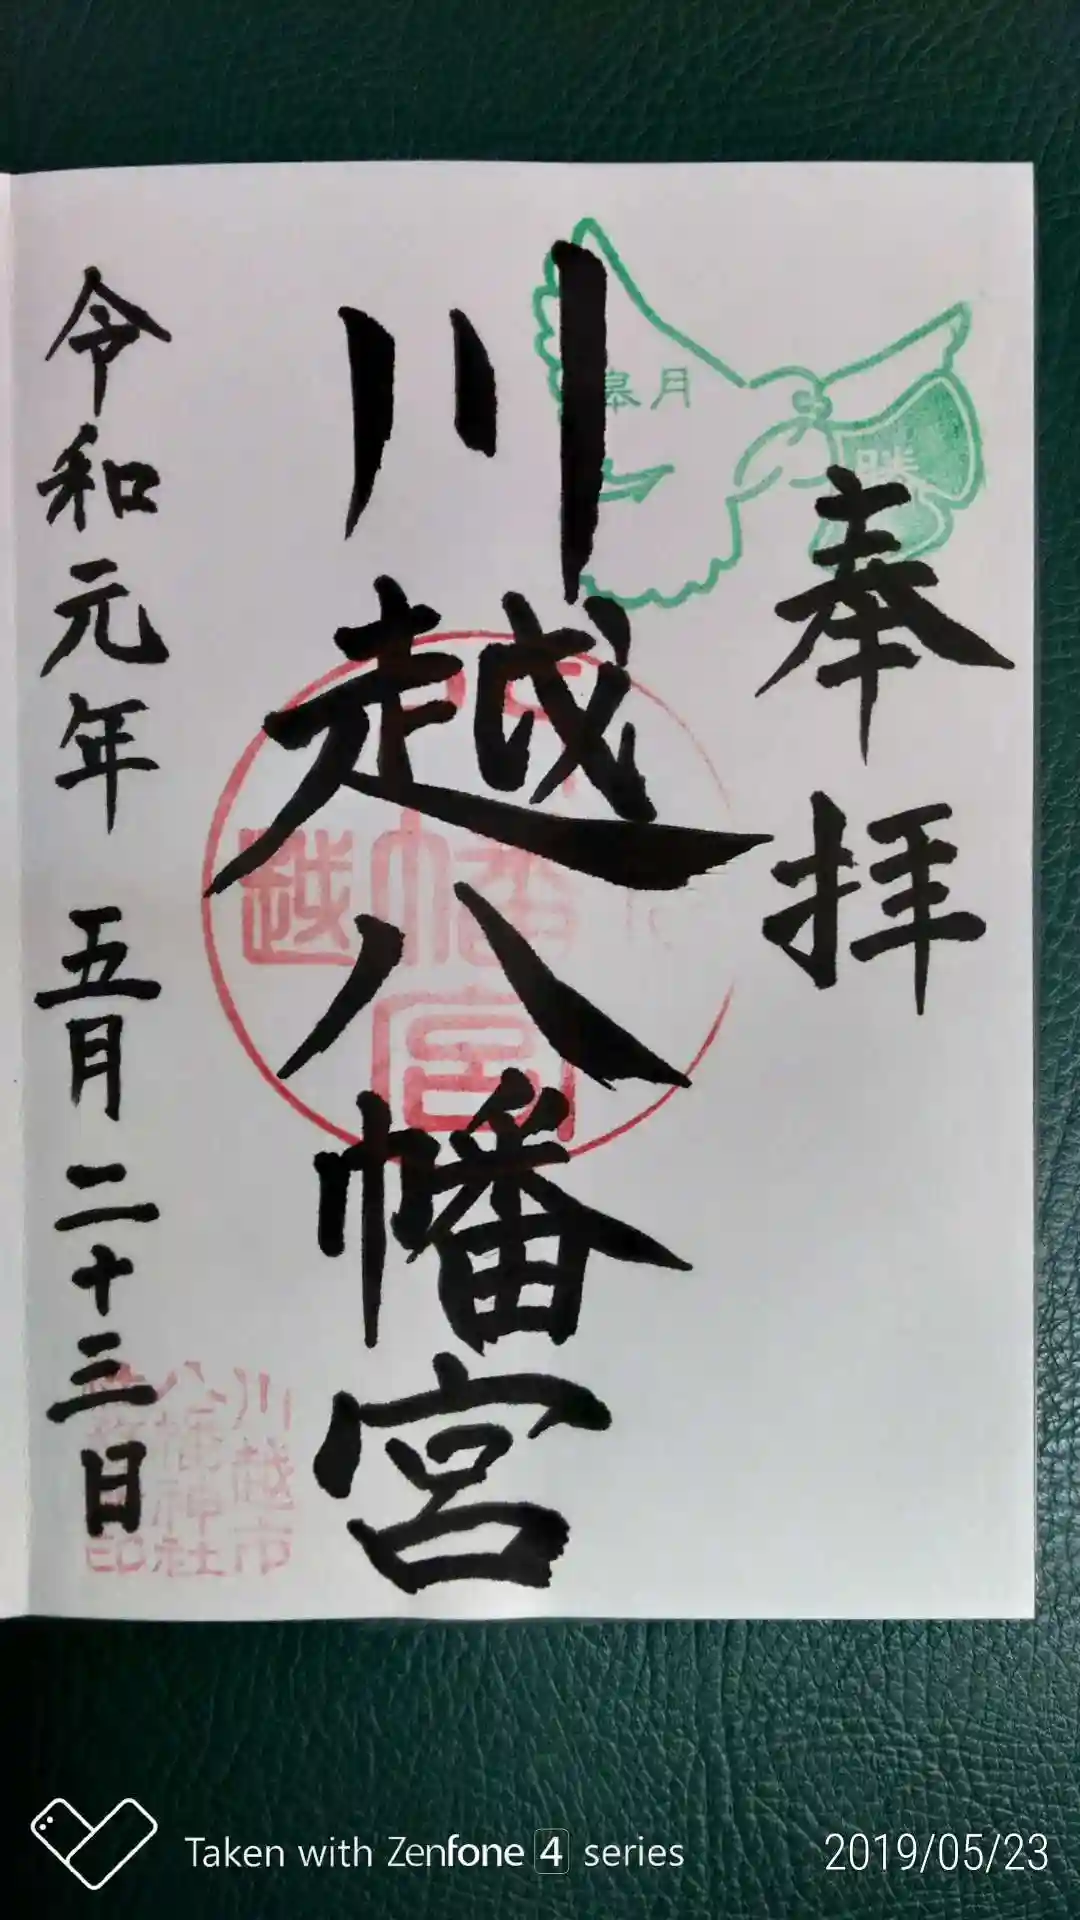 奉拝
皐月
勝
川越八幡宮
越
幡
宮
令和元年 五月二十三日
川越市
八幡神社
印
Taken with Zenfone 4 series
2019/05/23